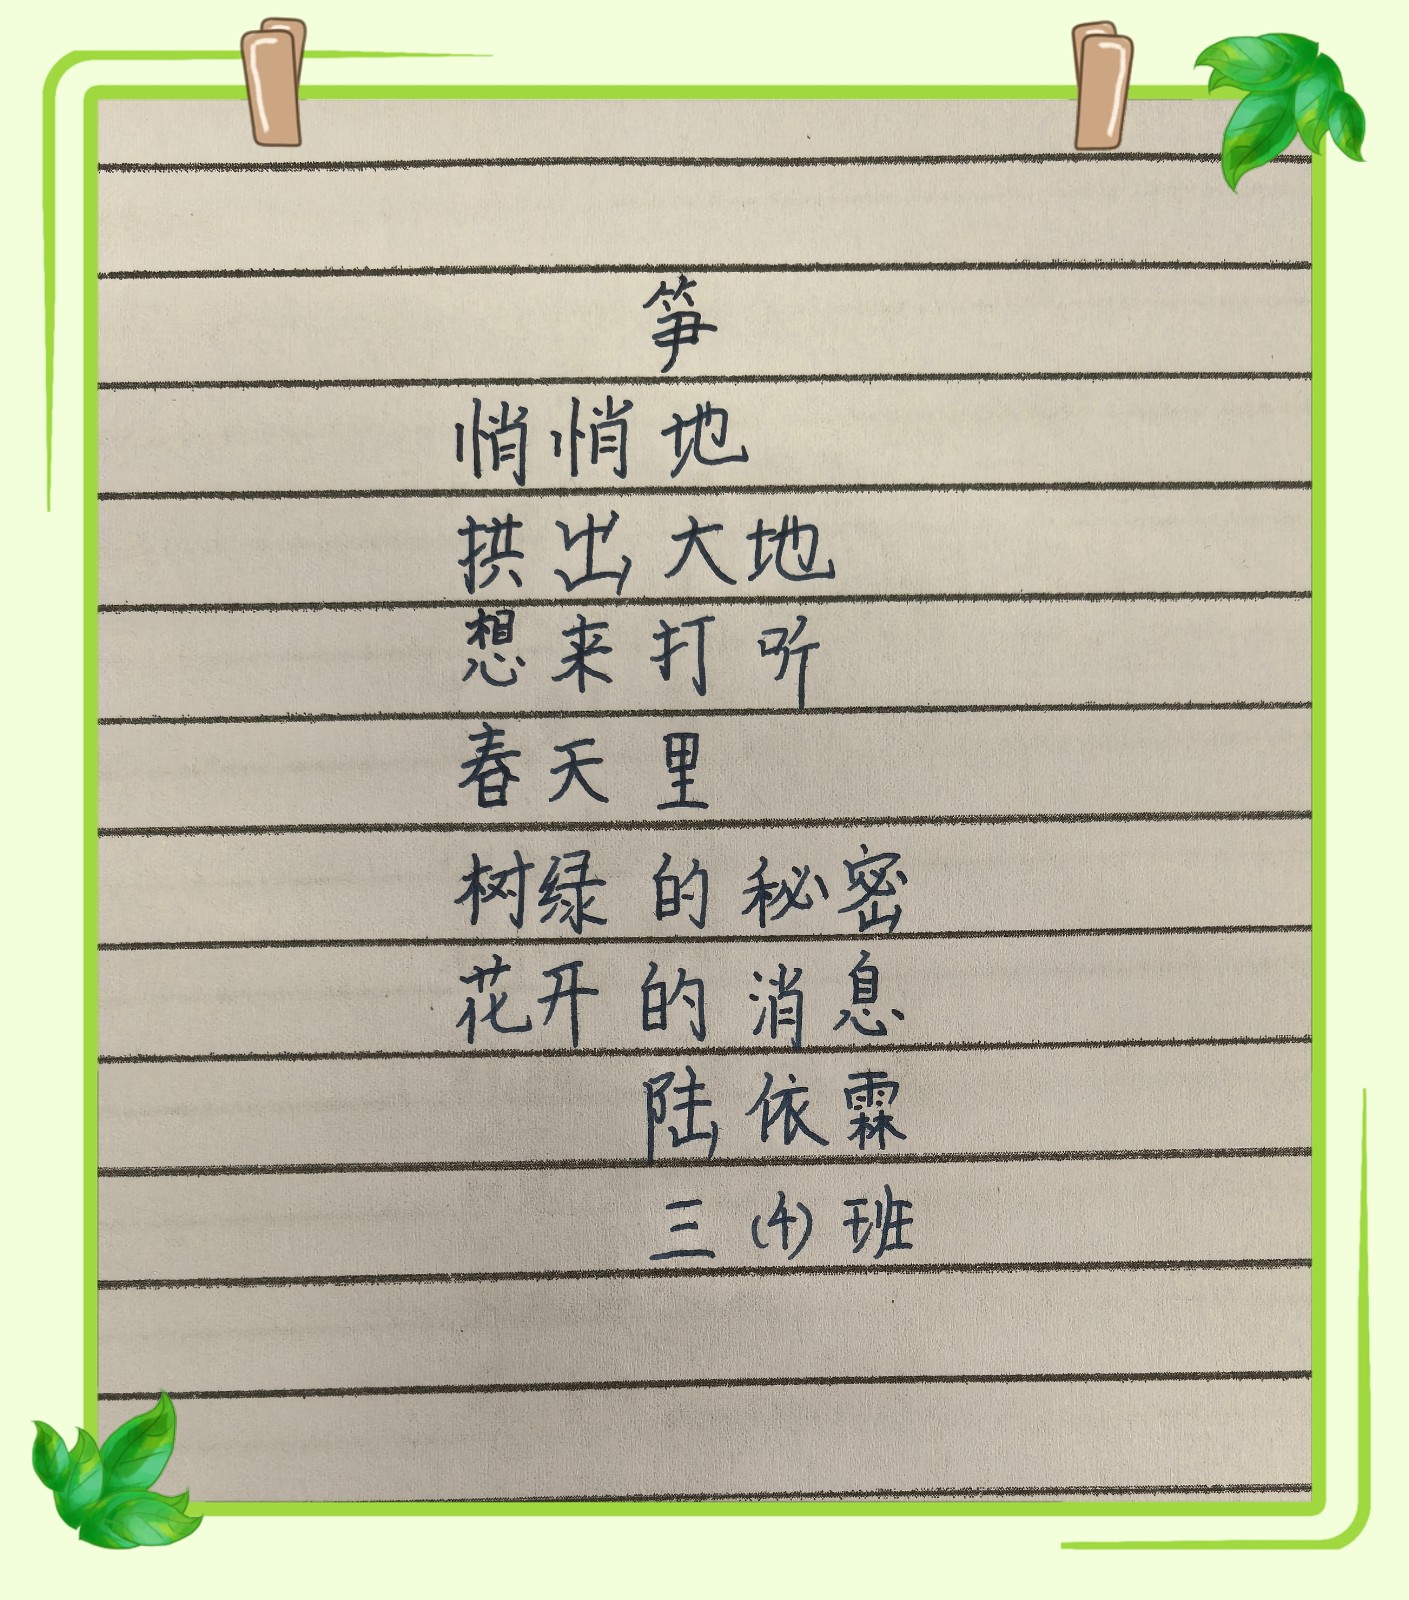 笋
悄悄地
拱出大地
想来打听
春天里
树绿的秘密
花开的消息
陆依霖
三(4)班